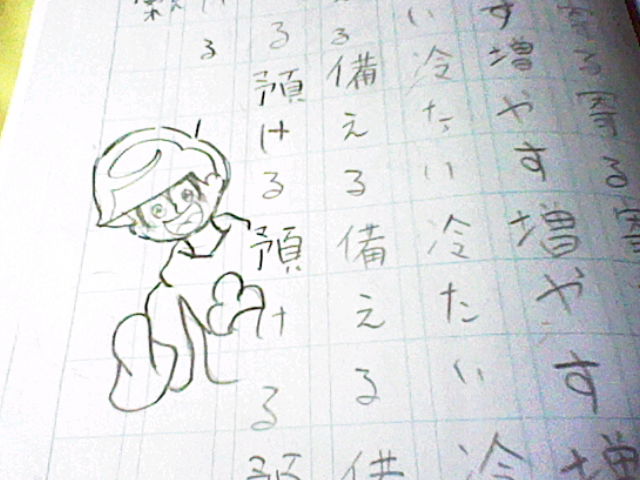 寄る寄る寄
す増やす増やす増
い冷たい冷たい冷
える備える備える備
る預ける預ける預
ける